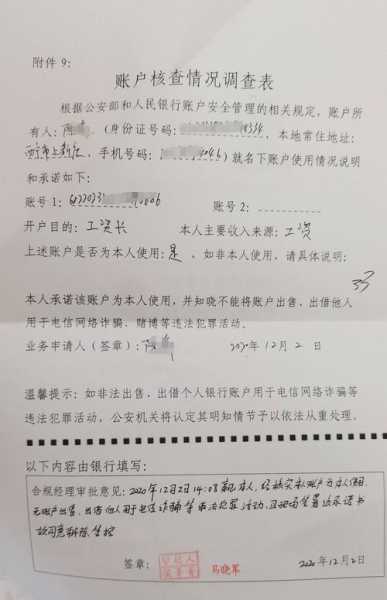 附件 9:
账户核查情况调查表
根据公安部和人民银行账户安全管理的相关规定,账户所
有人: (身份证号码: ,本地常住地址:
,手机号码: )就名下账户使用情况说明
和承诺如下:
账号 1: 账号 2:
开户目的:工资卡 本人主要收入来源:工资
上述账户是否为本人使用:是 、如非本人使用,请具体说明:
本人承诺该账户为本人使用,并知晓不能将账户出售、出借他人
用于电信网络诈骗、赌博等违法犯罪活动。
业务申请人(签章): 2020年 12月 2 日
温馨提示:如非法出售、出借个人银行账户用于电信网络诈骗等
违法犯罪活动,公安机关将认定其明知情节予以依法从重处理。
以下内容由银行填写:
合规经理审批意见:2020年12月2日14:08 本人,经核实本账户为本人使用
无账户出售、出借他人用于电信诈骗等违法犯罪活动,且现场签署该承诺书
故同意解除管控
签章: 马晓军 2020年12月2日